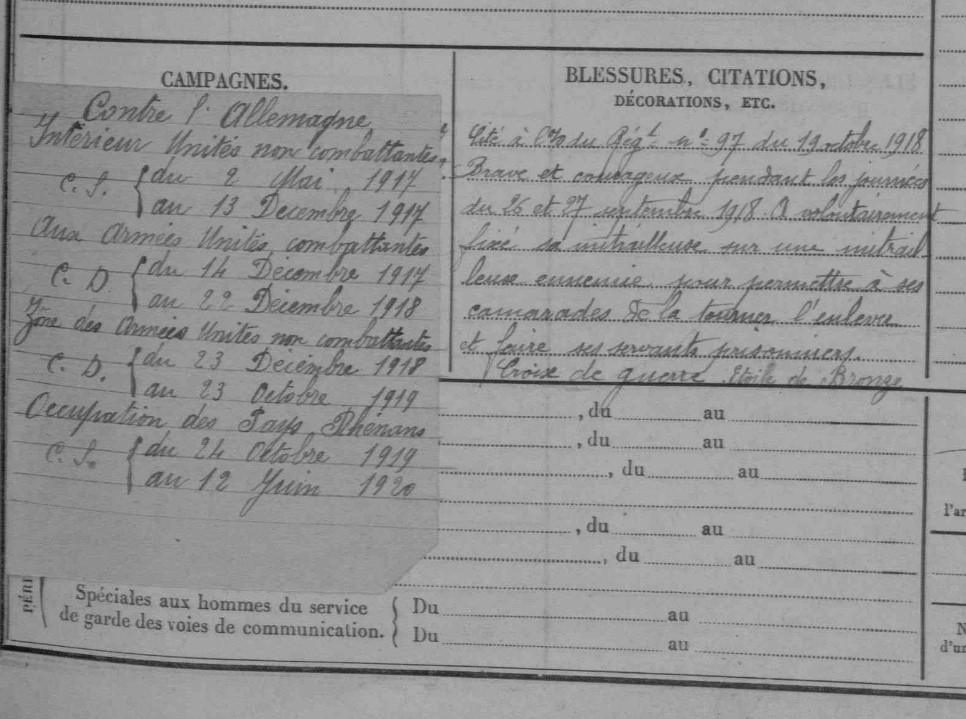 CAMPAGNES.
Contre l'Allemagne
Intérieur Unités non combattantes
C. S. { du 2 Mai 1917
au 13 Décembre 1917
Aux Armées Unités combattantes
C. D. { du 14 Décembre 1917
au 22 Décembre 1918
Zône des Armées Unités non combattantes
C. D. { du 23 Décembre 1918
au 23 Octobre 1919
Occupation des Pays Rhénans
C. S. { du 24 Octobre 1919
au 12 Juin 1920
BLESSURES, CITATIONS,
DÉCORATIONS, ETC.
Cité à l'O/ du Régt no 97 du 19 octobre 1918
Brave et courageux pendant les journées
du 26 et 27 septembre 1918. A volontairement
fixé sa mitrailleuse sur une mitrail
leuse ennemie pour permettre à ses
camarades de la tourner l'enlever
et faire ses servants prisonniers.
Croix de guerre Etoile de Bronze
, du au
, du au
, du au
, du au
, du au
PÉRI
Spéciales aux hommes du service
de garde des voies de communication. {
Du au
Du au
l'ar
N
d'un